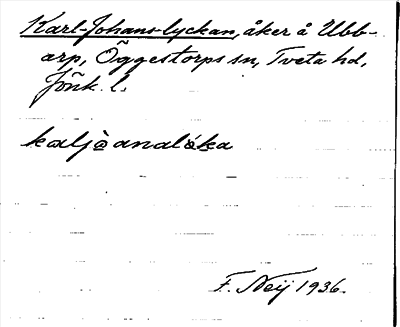 Karl-Johans-lyckan, åker å Ubb-
arp, Öggestorps sn, Tveta hd,
Jönk. l.
kaljòanalóka
F. Neij 1936.